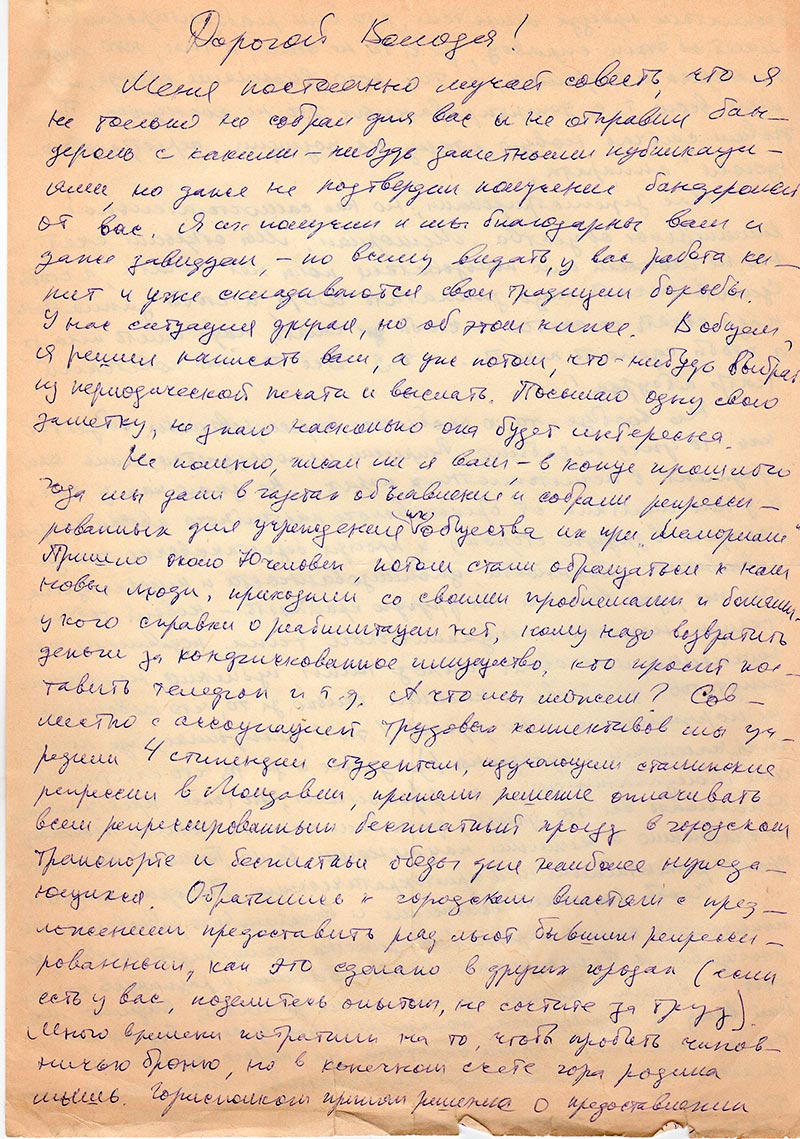 Дорогой Володя!
Меня постоянно мучает совесть, что я
не только не собрал для вас и не отправил бан-
дероль с какими-нибудь заметными публикаци-
ями, но даже не подтвердил получение бандеролей
от вас. Я их получил и мы благодарны вам и
даже завидуем, – по всему видать, у вас работа ки-
пит и уже складываются свои традиции борьбы.
У нас ситуация другая, но об этом ниже. В общем,
я решил написать вам, а уж потом, что-нибудь выбрать
из периодической печати и выслать. Посылаю одну свою
заметку, не знаю насколько она будет интересна.
Не помню, писал ли я вам, – в конце прошлого
года мы дали в газетах объявление и собрали репресси-
рованных для учреждения их общества при "Мемориале"
Пришло около человек, потом стали обращаться к нам
новые люди, приходили со своими проблемами и болями,
у кого справки о реабилитации нет, кому надо возвратить
деньги за конфискованное имущество, кто просит пос-
тавить телефон и т.д. А что мы можем? Сов-
местно с ассоциацией трудовых коллективов мы уч-
редили 4 стипендии студентам, изучающим сталинские
репрессии в Молдавии, приняли решение оплачивать
всем репрессированным бесплатный проезд в городском
транспорте и бесплатные обеды для наиболее нужда-
ющихся. Обратились к городским властям с пред-
ложением предоставить ряд льгот бывшим репресси-
рованным, как это сделано в других городах (если
есть у вас, поделитесь опытом, не сочтите за труд).
Много времени потратили на то, чтобы пробить чинов-
ничью броню, но в конечном счете гора родила
мышь. Горисполком принял решение о предоставлении